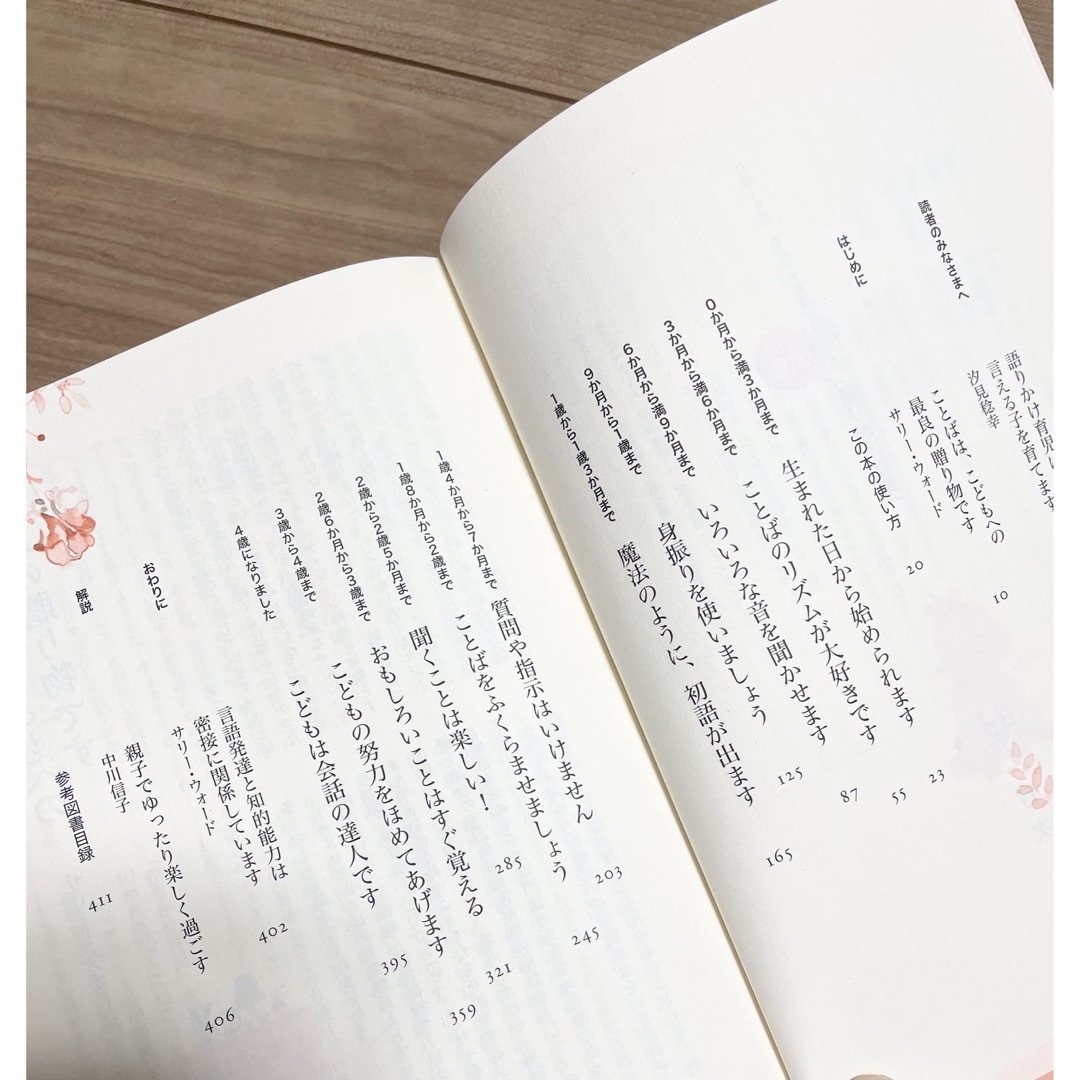 読者のみなさまへ
語りかけ育児は、
言える子を育てます
汐見稔幸
10
はじめに
ことばは、こどもへの
最良の贈り物です
サリー・ウォード
20
この本の使い方
23
0か月から満3か月まで
生まれた日から始められます
55
3か月から満6か月まで
ことばのリズムが大好きです
87
6か月から満9か月まで
いろいろな音を聞かせます
125
9か月から1歳まで
身振りを使いましょう
165
1歳から1歳3か月まで
魔法のように、初語が出ます
1歳4か月から7か月まで
質問や指示はいけません
203
1歳8か月から2歳まで
ことばをふくらませましょう
245
2歳から2歳5か月まで
聞くことは楽しい！
285
2歳6か月から3歳まで
おもしろいことはすぐ覚える
321
3歳から4歳まで
こどもの努力をほめてあげます
359
4歳になりました
こどもは会話の達人です
395
おわりに
言語発達と知的能力は
密接に関係しています
サリー・ウォード
402
解説
親子でゆったり楽しく過ごす
中川信子
406
参考図書目録
411